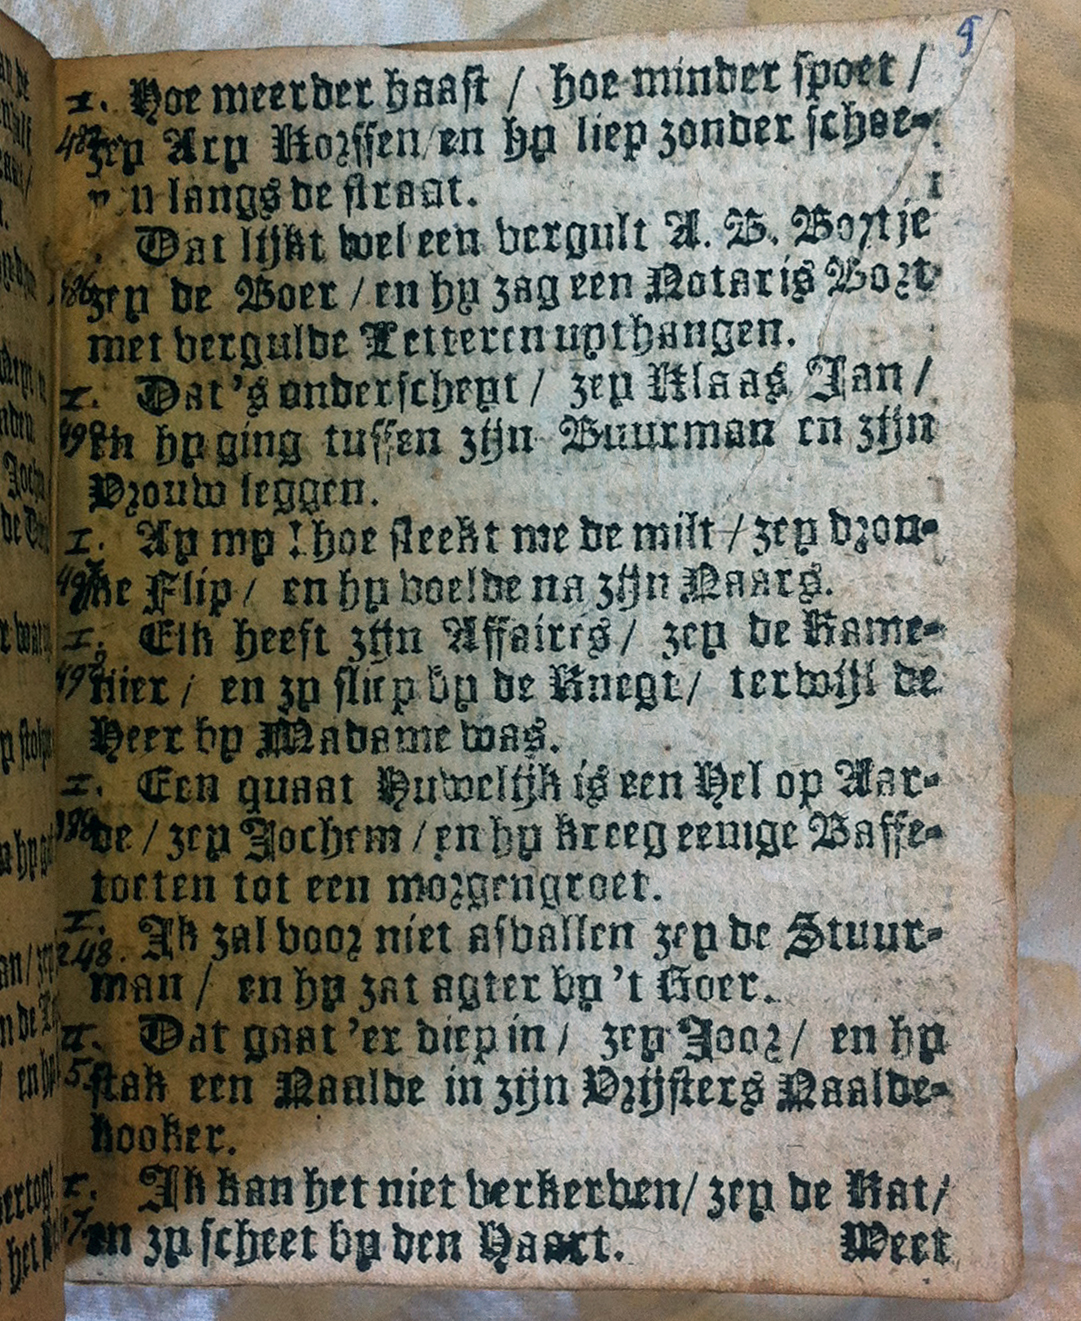 Hoe meerder haast / hoe minder spoet /
zey Ary Korssen / en hy liep zonder schoe-
nen langs de straat.
Dat lijkt wel een vergult A. B. Bortje
zey de Boer / en hy zag een Notaris Bort
met vergulde Letteren uythangen.
Dat 's onderscheyt / zey Klaas Jan /
en hy ging tussen zijn Buurman en zijn
Vrouw leggen.
Ay my ! hoe steekt me de milt / zey dron-
ke Flip / en hy voelde na zijn Naars.
Elk heeft zijn Affaires / zey de Kame-
nier / en zy sliep by de Knegt / terwijl de
Heer by Madame was.
Een quaat Huwelijk is een Hel op Aar-
de / zey Jochem / en hy kreeg eenige Baffe-
toeten tot een morgengroet.
Ik zal voor niet afvallen zey de Stuur-
man / en hy zat agter by 't Roer.
Dat gaat 'er diep in / zey Joor / en hy
stak een Naalde in zijn Vrijsters Naalde-
kooker.
Ik kan het niet verkerven / zey de Kat /
en zy scheet by den Haart. Weet